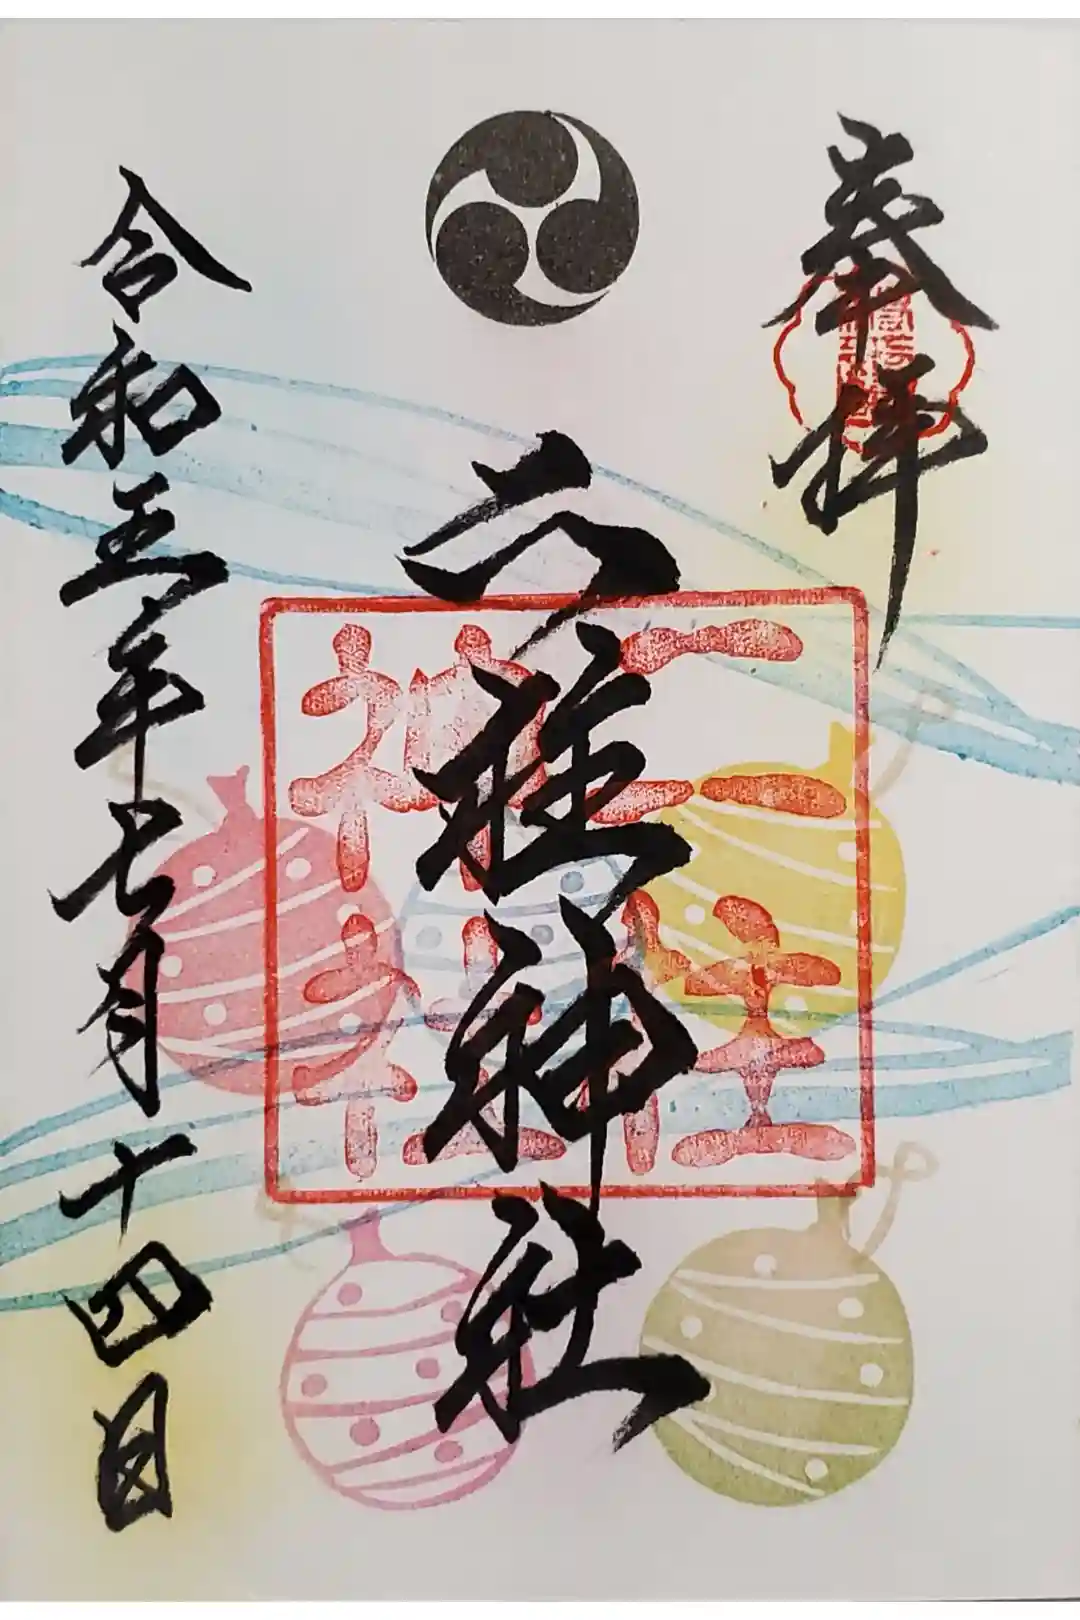 奉拝
二柱神社
二柱
神社
令和五年七月十四日